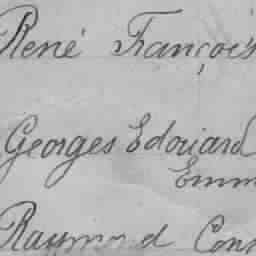 René François
Georges Edouard
Emm
Raymond Cons